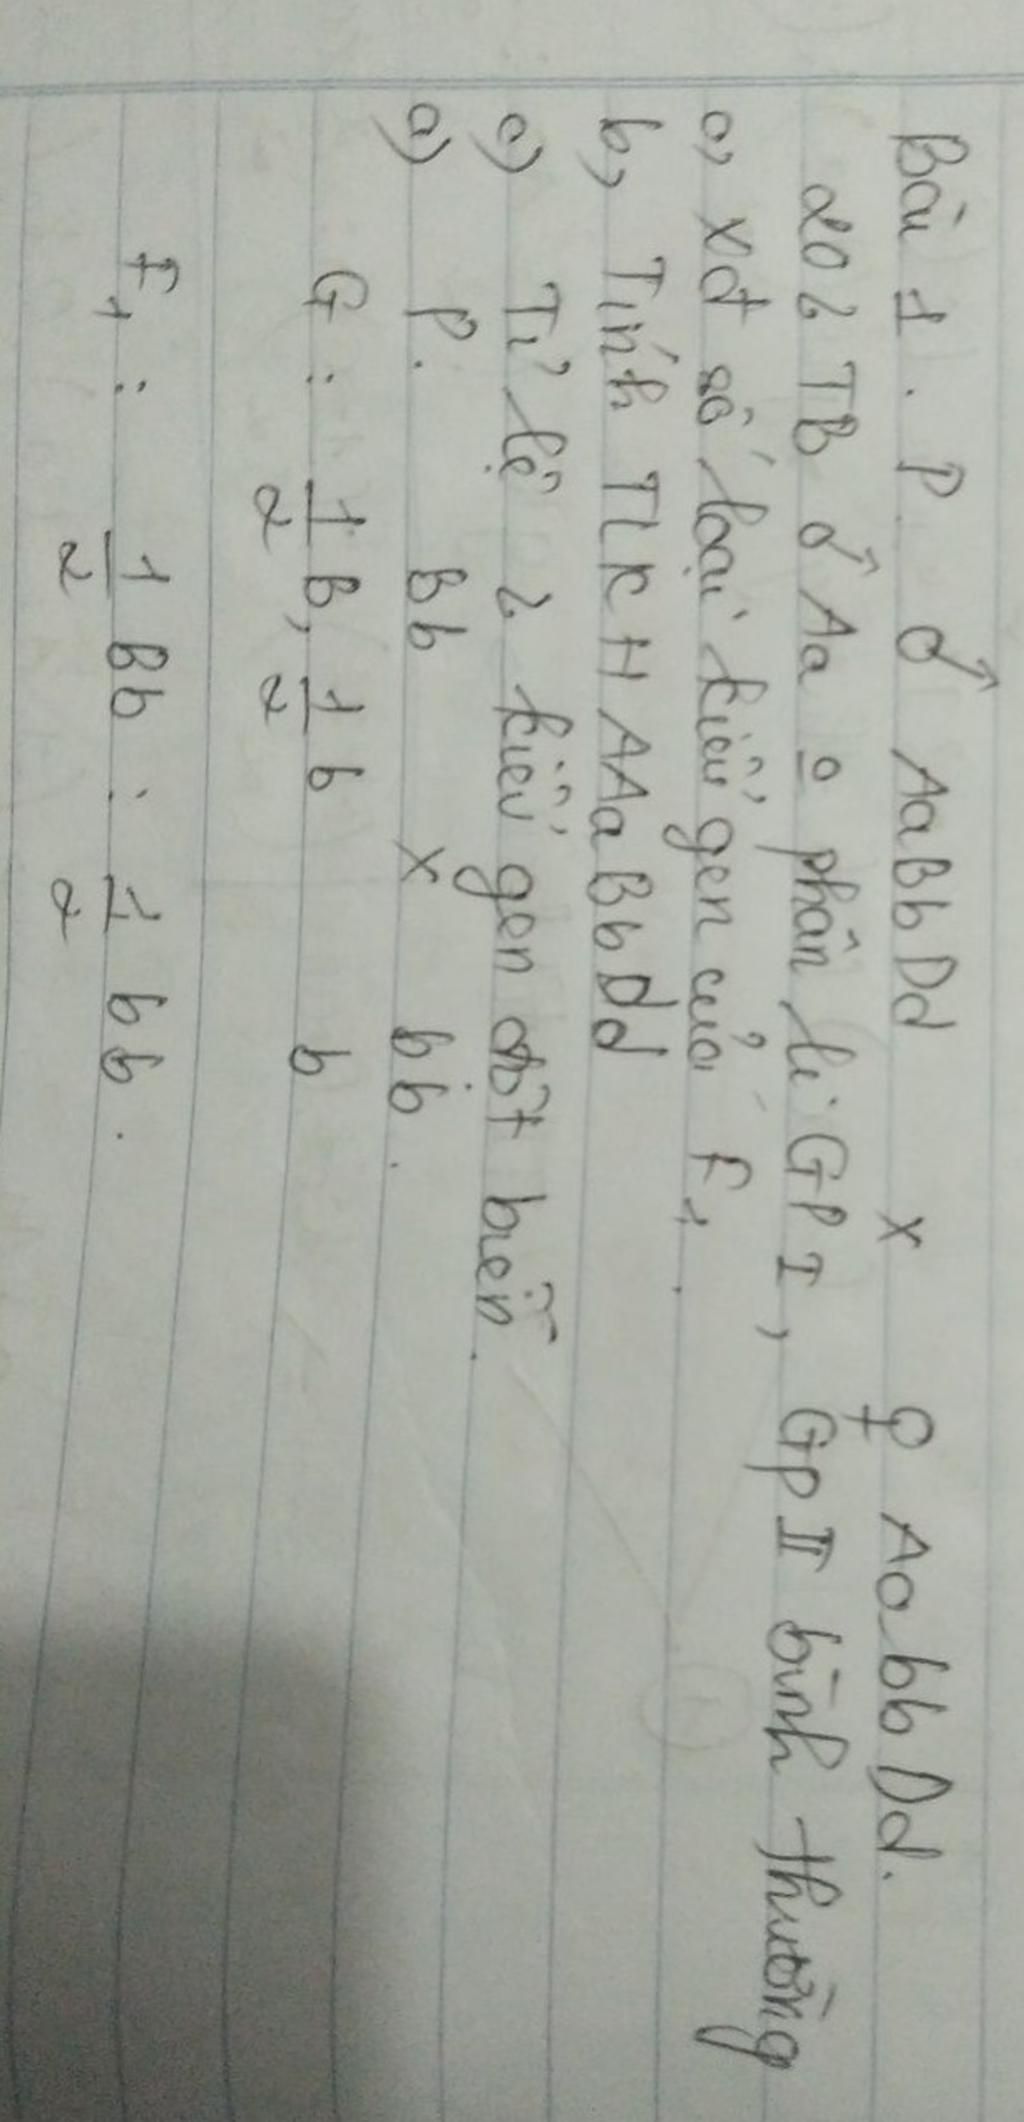 Bài 1. P. ♂ AaBbDd x ♀ AabbDd.
20% TB ♂ Aa o phân li GP I, GP II bình thường
a, Xđ số loại kiểu gen của F1.
b, Tính TLKH AAaBbDd
c) Tỉ lệ % kiểu gen đột biến.
a) P. Bb x bb.
G: 1/2 B, 1/2 b b
F1: 1/2 Bb : 1/2 bb.